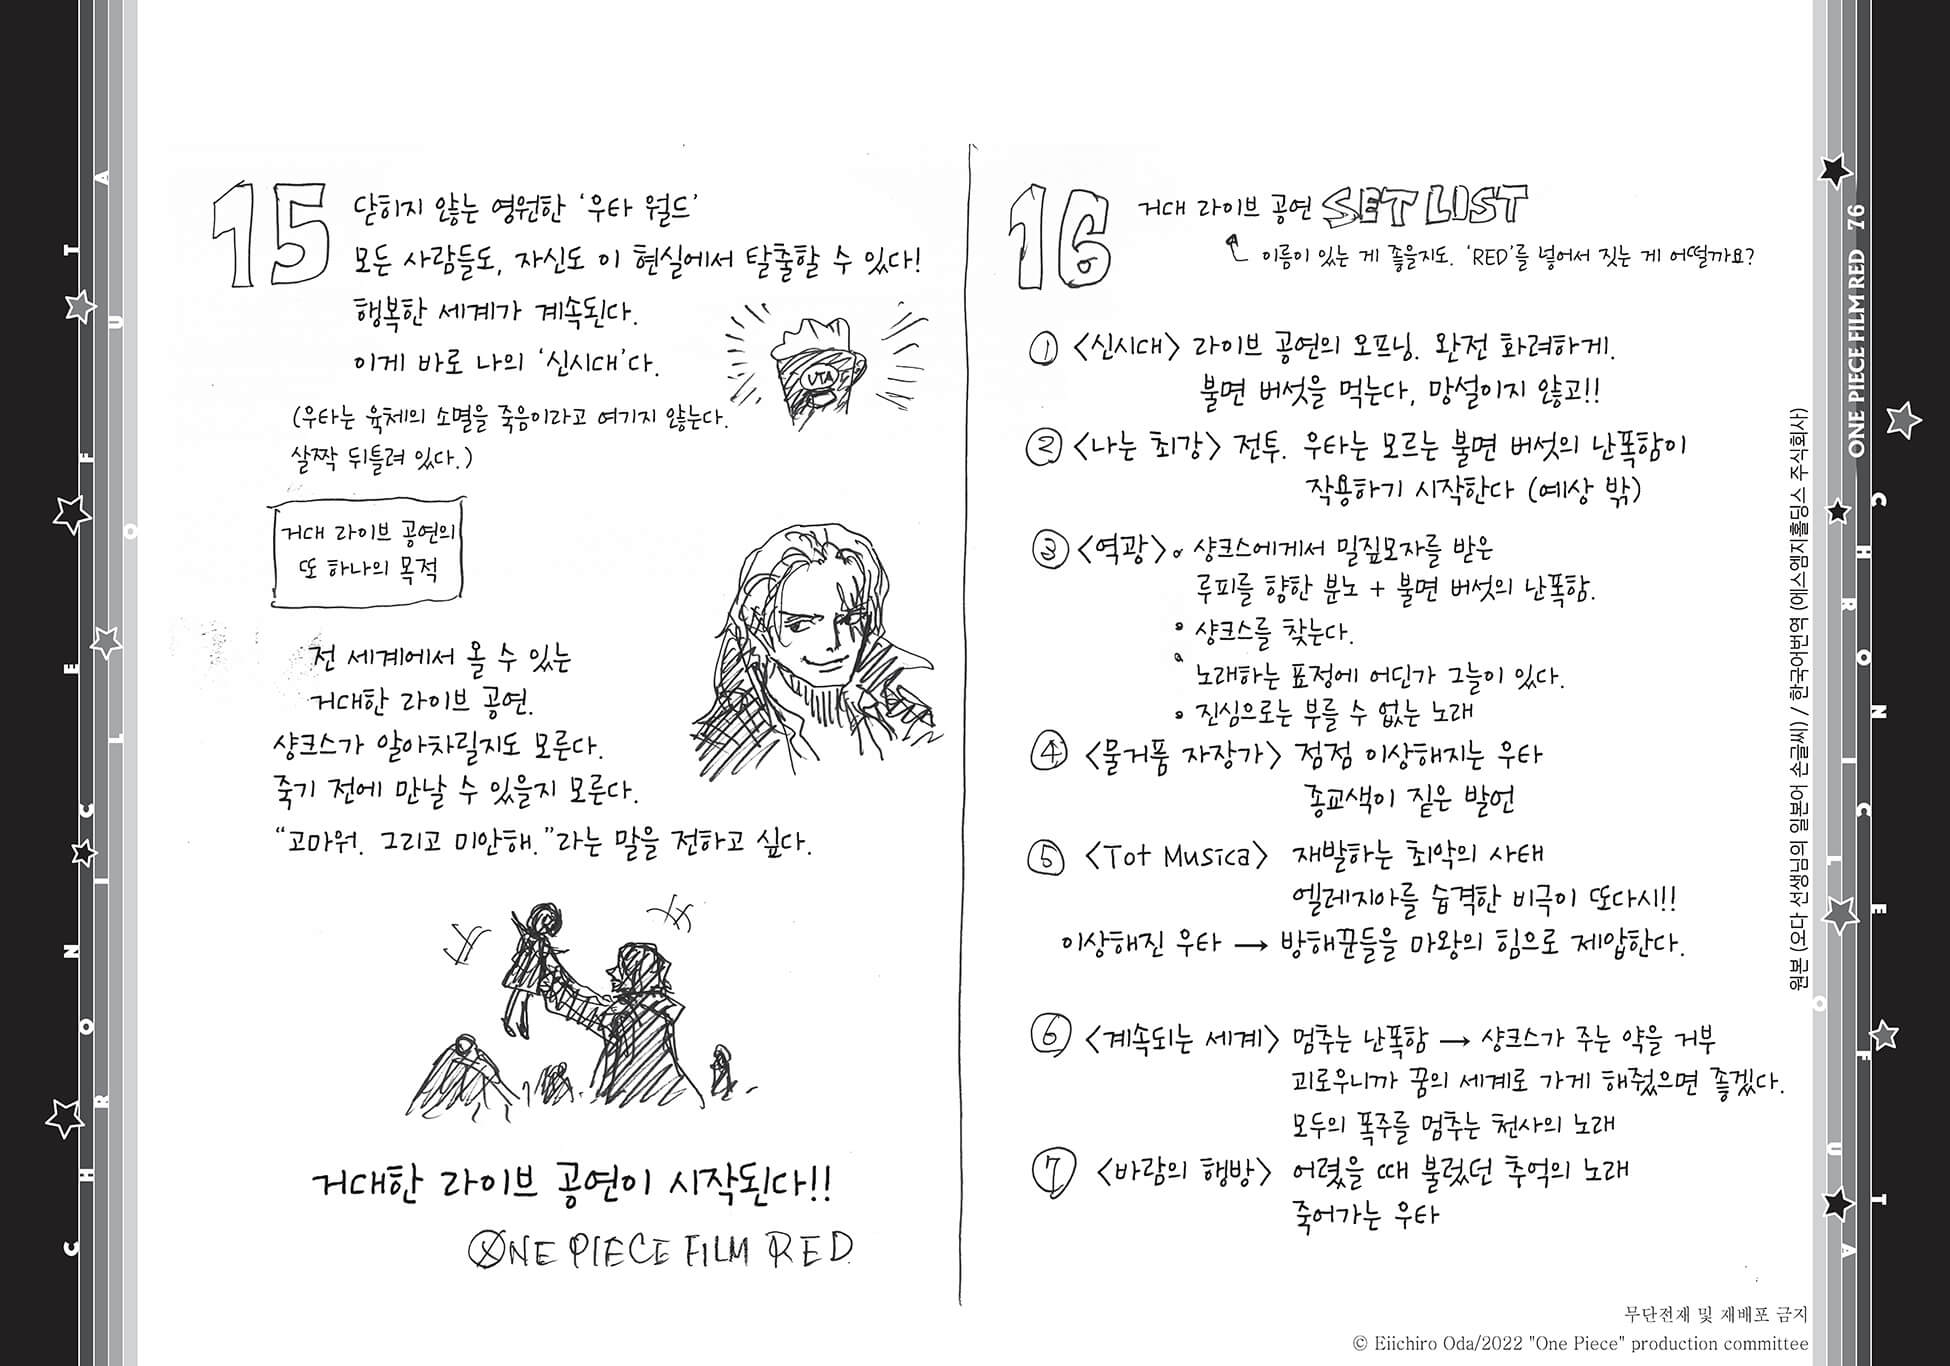 15
닫히지 않는 영원한 '우타 월드'
모든 사람들도, 자신도 이 현실에서 탈출할 수 있다!
행복한 세계가 계속된다.
이게 바로 나의 '신시대'다.
UTA
(우타는 육체의 소멸을 죽음이라고 여기지 않는다.
살짝 뒤틀려 있다.)
거대 라이브 공연의
또 하나의 목적
전 세계에서 올 수 있는
거대한 라이브 공연.
샹크스가 알아차릴지도 모른다.
죽기 전에 만날 수 있을지 모른다.
"고마워. 그리고 미안해."라는 말을 전하고 싶다.
거대한 라이브 공연이 시작된다!!
ONE PIECE FILM RED
16
거대 라이브 공연 SET LIST
이름이 있는 게 좋을지도. 'RED'를 넣어서 짓는 게 어떨까요?
① <신시대> 라이브 공연의 오프닝. 완전 화려하게.
불면 버섯을 먹는다, 망설이지 않고!!
② <나는 최강> 전투. 우타는 모르는 불면 버섯의 난폭함이
작용하기 시작한다 (예상 밖)
③ <역광>。 샹크스에게서 밀짚모자를 받은
루피를 향한 분노 + 불면 버섯의 난폭함.
• 샹크스를 찾는다.
• 노래하는 표정에 어딘가 그늘이 있다.
• 진심으로는 부를 수 없는 노래
④ <물거품 자장가> 점점 이상해지는 우타
종교색이 짙은 발언
⑤ <Tot Musica> 재발하는 최악의 사태
엘레지아를 습격한 비극이 또다시!!
이상해진 우타 → 방해꾼들을 마왕의 힘으로 제압한다.
⑥ <계속되는 세계> 멈추는 난폭함 → 샹크스가 주는 약을 거부
괴로우니까 꿈의 세계로 가게 해줬으면 좋겠다.
모두의 폭주를 멈추는 천사의 노래
⑦ <바람의 행방> 어렸을 때 불렀던 추억의 노래
죽어가는 우타
CHRONICLE OF UTA
ONE PIECE FILM RED 76
CHRONICLE OF UTA
원본 (오다 선생님의 일본어 손글씨) / 한국어번역 (에스엠지홀딩스 주식회사)
무단전재 및 재배포 금지
© Eiichiro Oda/2022 "One Piece" production committee